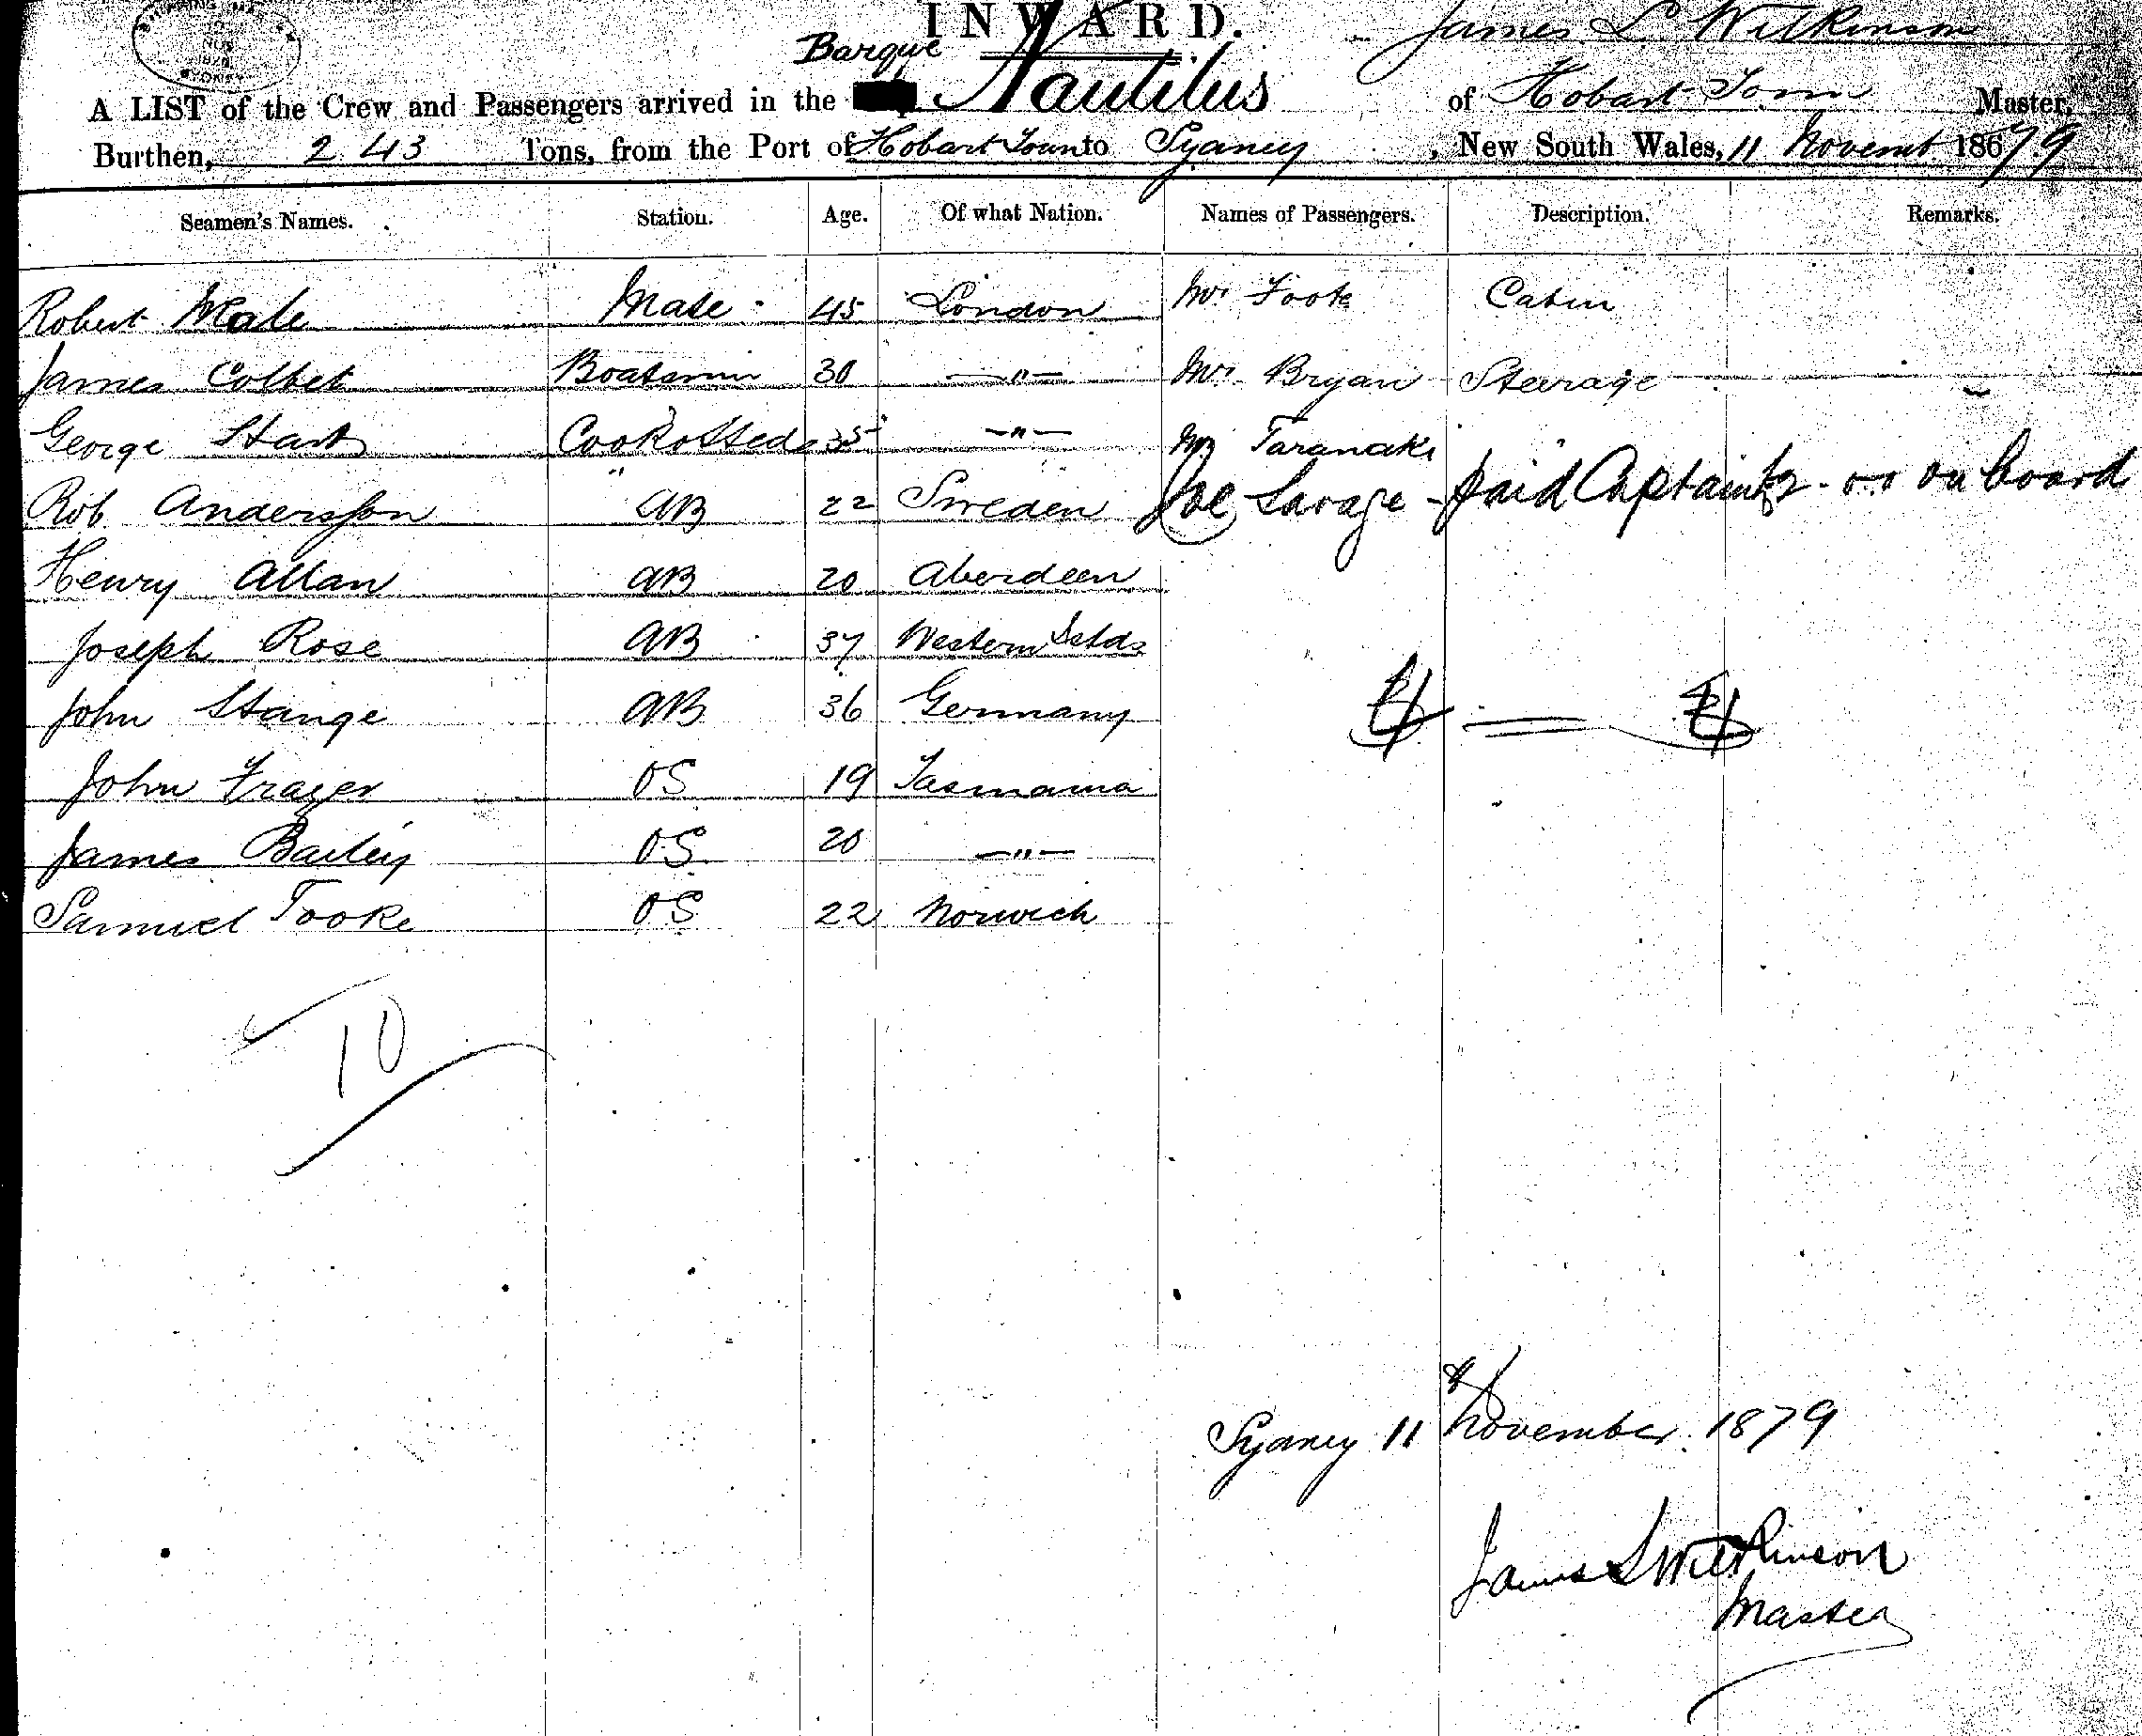 INWARD.
James L Wilkinson
Barque
A LIST of the Crew and Passengers arrived in the Nautilus of Hobart Town Master,
Burthen, 243 Tons, from the Port of Hobart Town to Sydney, New South Wales, 11 Novemb 1879
Seamen's Names. Station. Age. Of what Nation. Names of Passengers. Description. Remarks.
Robert Mate 45 London Mr Foote Cabin
James Colbet Boatswain 30 —"— Mr Bryan Steerage
George 35 —"— Mr Taranaki
Rob Andersson AB 22 Sweden Joe Savage - paid Captain on board
Henry Allan AB 20 Aberdeen
Joseph Rose AB 37 Western Islds
John Stange AB 36 Germany
John Frazer OS 19 Tasmania
James Bailey OS 20 —"—
Samuel Tooke OS 22 Norwich
10
Sydney 11 November 1879
James L Wilkinson
Master